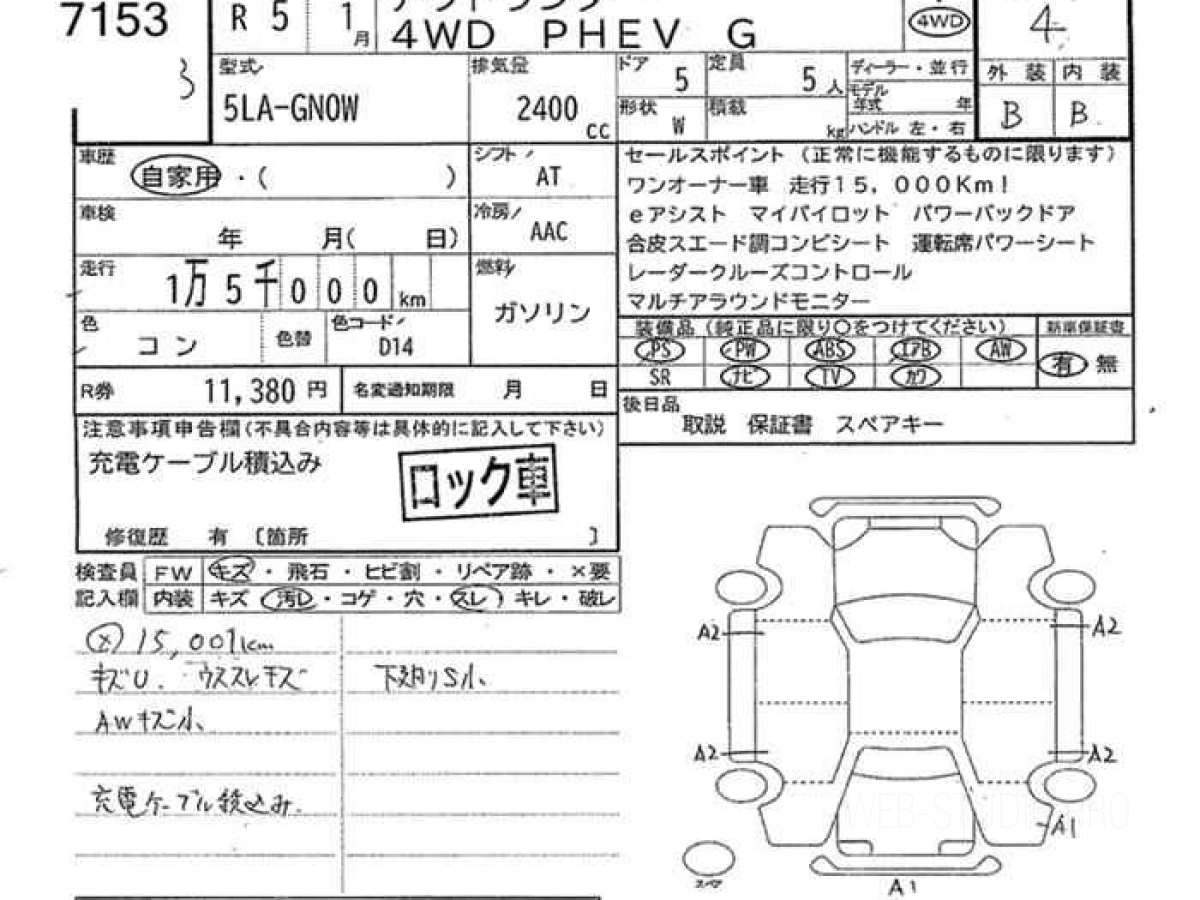 7153
R 5 1月
4WD PHEV G
4WD
4
3
型式
5LA-GN0W
排気量
2400 cc
ドア 5
定員 5 人
形状 W
積載 kg
ディーラー・並行
モデル年式 年
ハンドル 左・右
外装 内装
B B
車歴
自家用・( )
シフト
AT
車検
年 月( 日)
冷房
AAC
走行
1万5千000 km
燃料
ガソリン
色
コン
色替
色コード
D14
R券 11,380 円
名変通知期限 月 日
セールスポイント(正常に機能するものに限ります)
ワンオーナー車 走行15,000Km!
eアシスト マイパイロット パワーバックドア
合皮スエード調コンビシート 運転席パワーシート
レーダークルーズコントロール
マルチアラウンドモニター
装備品(純正品に限り○をつけてください)
新車保証書
PS PW ABS エアB AW
SR ナビ TV カワ
有 無
後日品
取説 保証書 スペアキー
注意事項申告欄(不具合内容等は具体的に記入して下さい)
充電ケーブル積込み
ロック車
修復歴 有 〔箇所 〕
検査員記入欄
FW キズ・飛石・ヒビ割・リペア跡・×要
内装 キズ・汚レ・コゲ・穴・スレ・キレ・破レ
15,001km
キズU. ウススレキズ
下廻りS小
AWキズ小
充電ケーブル積込み.
A2
A2
A2
A2
A1
A1
スペア
WEB-STUDIO.PRO